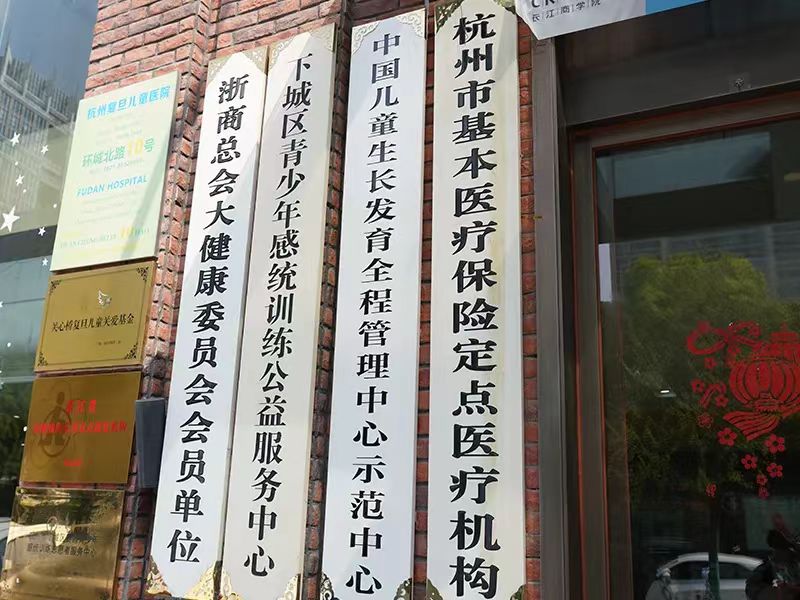 长江商学院
杭州复旦儿童医院
环城北路10号
FUDAN HOSPITAL
关心桥复旦儿童关爱基金
浙商总会大健康委员会会员单位
下城区青少年感统训练公益服务中心
中国儿童生长发育全程管理中心示范中心
杭州市基本医疗保险定点医疗机构